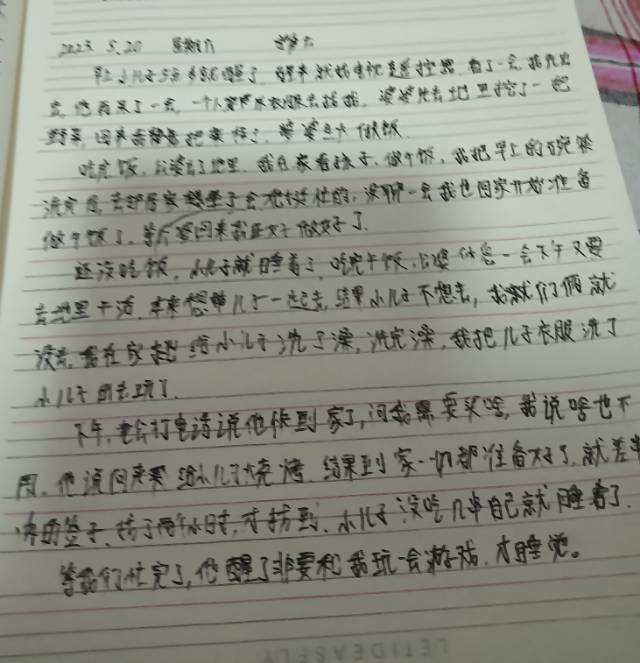 2023 5.20 星期六
早上小儿子5点多就醒了 醒来就找电视遥控器 看了一会 我先出
去 他再看了一会 一个人穿好衣服去找我。婆婆先去地里挖了一把
野菜,回来 做饭
吃完饭,公婆去了地里,我在家看孩子、做午饭,我把早上的碗筷
洗完后,去邻居家 了会 挺忙的,没聊一会我也回家开始准备
做午饭了。等公婆回来我正好做好了。
还没吃饭,小儿子就睡着了,吃完午饭,公婆休息一会下午又要
去地里干活,本来想带儿子一起去,结果小儿子不想去,我们俩就
没去,我在家 给小儿子洗了澡,洗完澡,我把儿子衣服洗了
小儿子 去玩了
下午,老公打电话说他快到家了,问我需要买啥,我说啥也不
用,他说回来要给小儿子烧烤,结果到家一切都准备好了,就差串
的签子,找了两个小时,才找到,小儿子没吃几串自己就睡着了.
等我们忙完了,他醒了非要和我玩一会游戏,才睡觉。
LETIDEASFLY